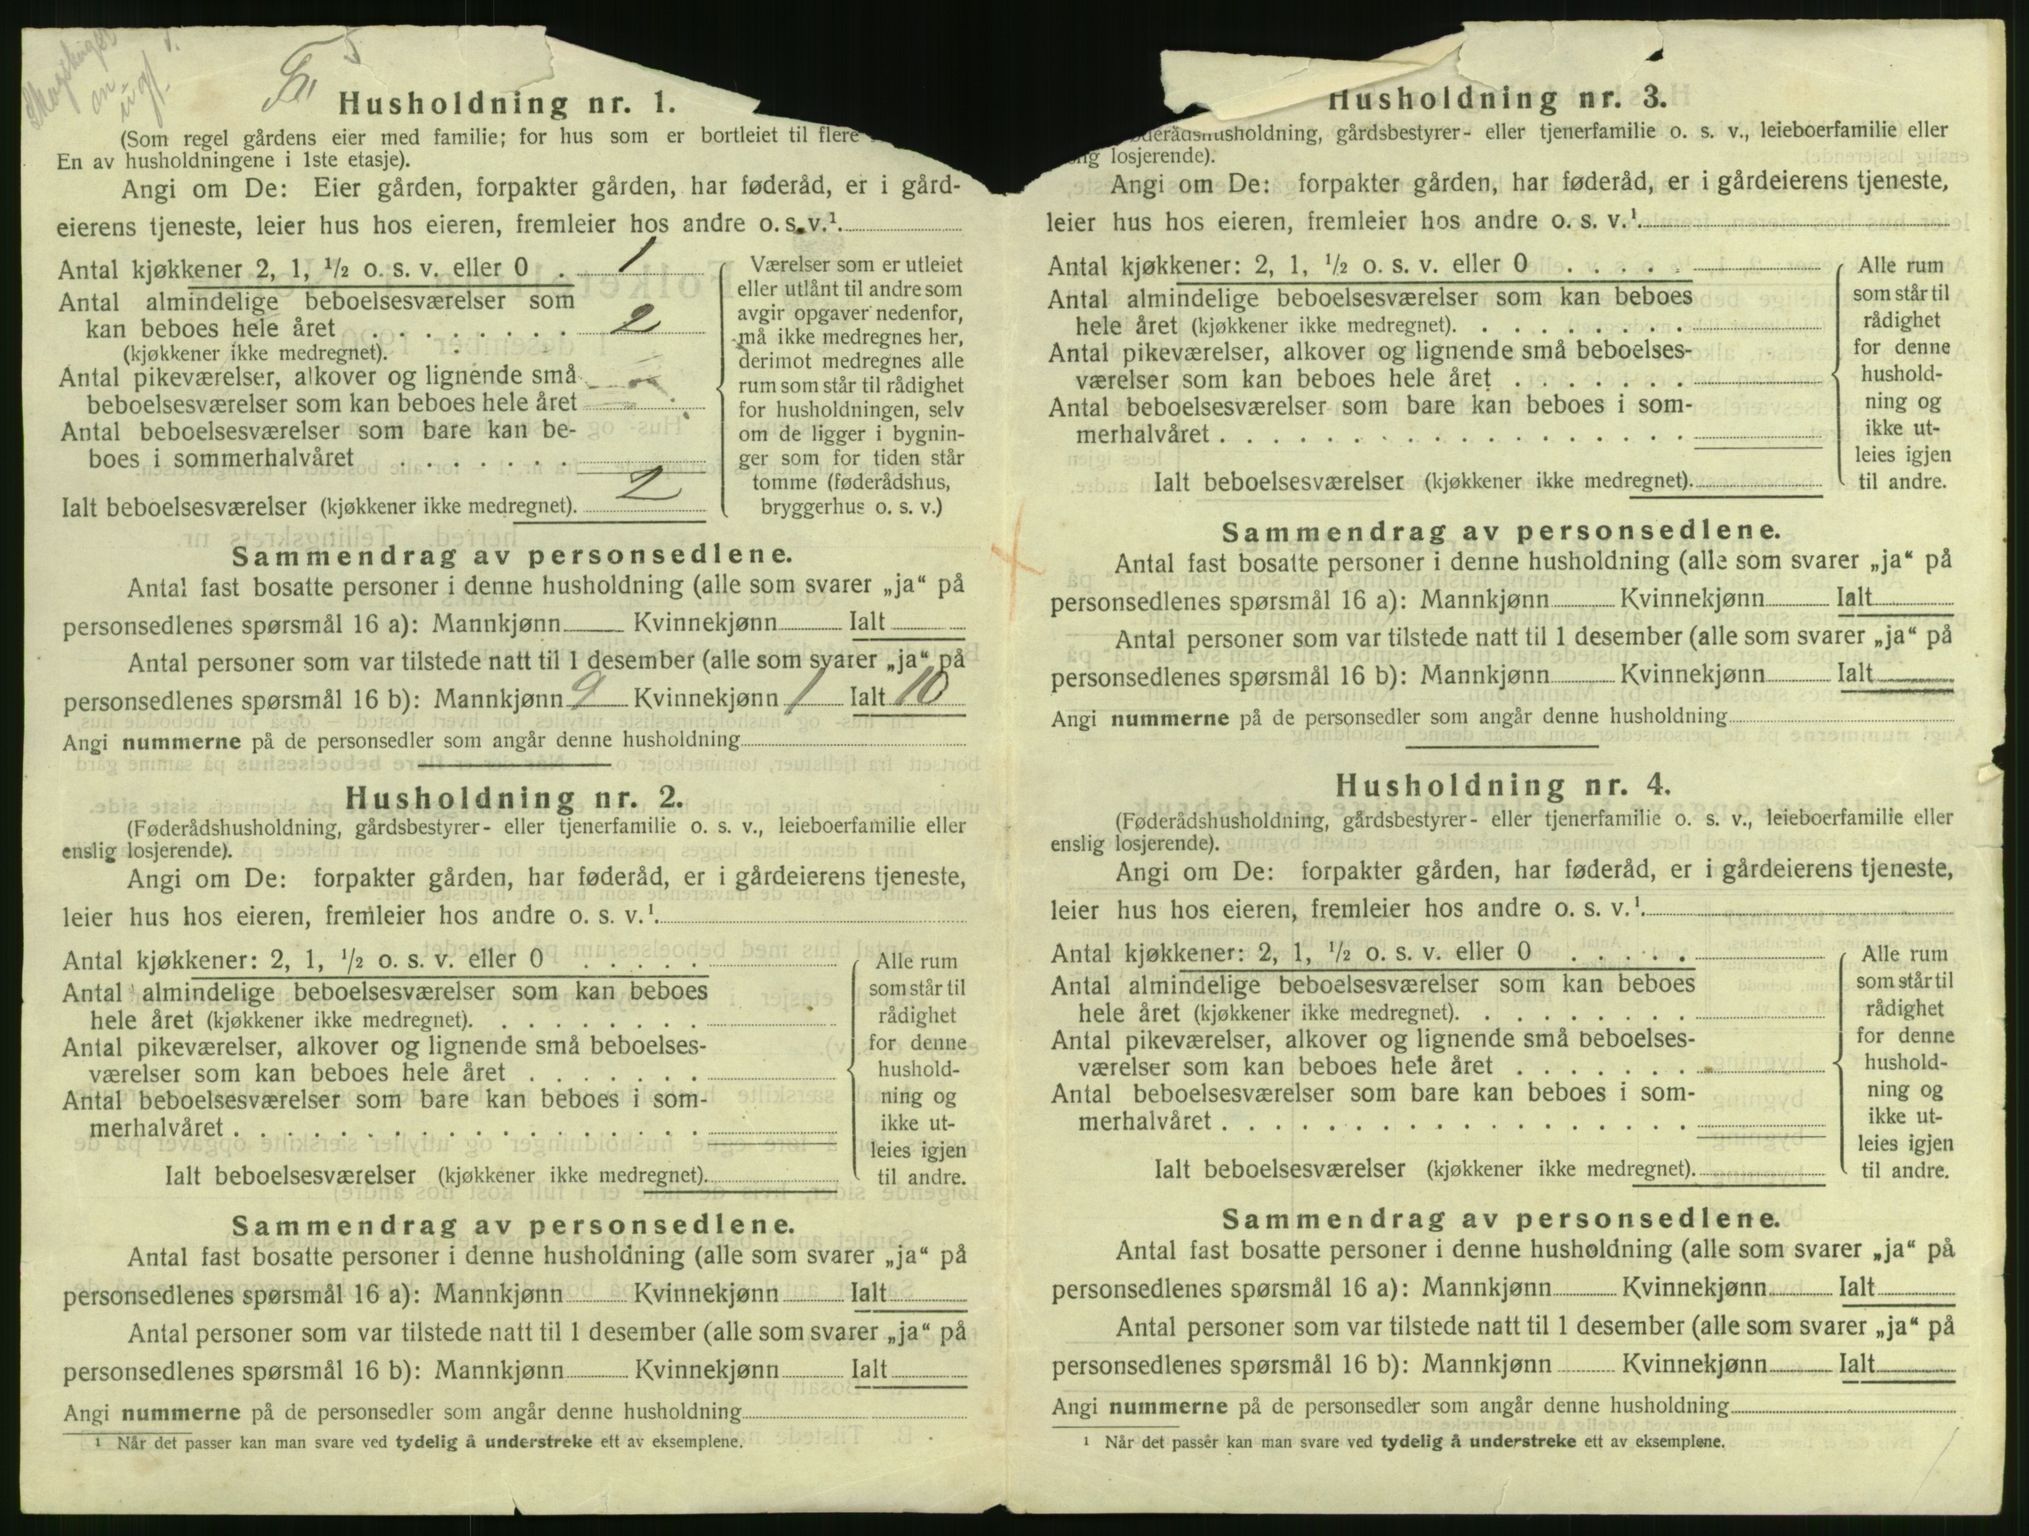 Husholdning nr. 1.
(Som regel gårdens eier med familie; for hus som er bortleiet til flere
En av husholdningene i 1ste etasje).
Angi om De: Eier gården, forpakter gården, har føderåd, er i gård-
eierens tjeneste, leier hus hos eieren, fremleier hos andre o. s. v.¹
Antal kjøkkener 2, 1, ½ o. s. v. eller 0 . 1
Antal almindelige beboelsesværelser som
kan beboes hele året . . . . . . . . 2
(kjøkkener ikke medregnet).
Antal pikeværelser, alkover og lignende små
beboelsesværelser som kan beboes hele året
Antal beboelsesværelser som bare kan be-
boes i sommerhalvåret . . . . . . .
Ialt beboelsesværelser (kjøkkener ikke medregnet). 2
Værelser som er utleiet
eller utlånt til andre som
avgir opgaver nedenfor,
må ikke medregnes her,
derimot medregnes alle
rum som står til rådighet
for husholdningen, selv
om de ligger i bygnin-
ger som for tiden står
tomme (føderådshus,
bryggerhus o. s. v.)
Sammendrag av personsedlene.
Antal fast bosatte personer i denne husholdning (alle som svarer „ja“ på
personsedlenes spørsmål 16 a): Mannkjønn Kvinnekjønn Ialt
Antal personer som var tilstede natt til 1 desember (alle som svarer „ja“ på
personsedlenes spørsmål 16 b): Mannkjønn 9 Kvinnekjønn 1 Ialt 10
Angi nummerne på de personsedler som angår denne husholdning
Husholdning nr. 2.
(Føderådshusholdning, gårdsbestyrer- eller tjenerfamilie o. s. v., leieboerfamilie eller
enslig losjerende).
Angi om De: forpakter gården, har føderåd, er i gårdeierens tjeneste,
leier hus hos eieren, fremleier hos andre o. s. v.¹
Antal kjøkkener: 2, 1, ½ o. s. v. eller 0 . . . . .
Antal almindelige beboelsesværelser som kan beboes
hele året (kjøkkener ikke medregnet). . . . . . . . .
Antal pikeværelser, alkover og lignende små beboelses-
værelser som kan beboes hele året . . . . . . .
Antal beboelsesværelser som bare kan beboes i som-
merhalvåret . . . . . . . . . . . . . . . . . .
Ialt beboelsesværelser (kjøkkener ikke medregnet).
Alle rum
som står til
rådighet
for denne
hushold-
ning og
ikke ut-
leies igjen
til andre.
Sammendrag av personsedlene.
Antal fast bosatte personer i denne husholdning (alle som svarer „ja“ på
personsedlenes spørsmål 16 a): Mannkjønn Kvinnekjønn Ialt
Antal personer som var tilstede natt til 1 desember (alle som svarer „ja“ på
personsedlenes spørsmål 16 b): Mannkjønn Kvinnekjønn Ialt
Angi nummerne på de personsedler som angår denne husholdning
¹ Når det passer kan man svare ved tydelig å understreke ett av eksemplene.
Husholdning nr. 3.
føderådshusholdning, gårdsbestyrer- eller tjenerfamilie o. s. v., leieboerfamilie eller
losjerende).
Angi om De: forpakter gården, har føderåd, er i gårdeierens tjeneste,
leier hus hos eieren, fremleier hos andre o. s. v.¹
Antal kjøkkener: 2, 1, ½ o. s. v. eller 0 . . . . .
Antal almindelige beboelsesværelser som kan beboes
hele året (kjøkkener ikke medregnet). . . . . . . . .
Antal pikeværelser, alkover og lignende små beboelses-
værelser som kan beboes hele året . . . . . . .
Antal beboelsesværelser som bare kan beboes i som-
merhalvåret . . . . . . . . . . . . . . . . . .
Ialt beboelsesværelser (kjøkkener ikke medregnet).
Alle rum
som står til
rådighet
for denne
hushold-
ning og
ikke ut-
leies igjen
til andre.
Sammendrag av personsedlene.
Antal fast bosatte personer i denne husholdning (alle som svarer „ja“ på
personsedlenes spørsmål 16 a): Mannkjønn Kvinnekjønn Ialt
Antal personer som var tilstede natt til 1 desember (alle som svarer „ja“ på
personsedlenes spørsmål 16 b): Mannkjønn Kvinnekjønn Ialt
Angi nummerne på de personsedler som angår denne husholdning
Husholdning nr. 4.
(Føderådshusholdning, gårdsbestyrer- eller tjenerfamilie o. s. v., leieboerfamilie eller
enslig losjerende).
Angi om De: forpakter gården, har føderåd, er i gårdeierens tjeneste,
leier hus hos eieren, fremleier hos andre o. s. v.¹
Antal kjøkkener: 2, 1, ½ o. s. v. eller 0 . . . . .
Antal almindelige beboelsesværelser som kan beboes
hele året (kjøkkener ikke medregnet). . . . . . . . .
Antal pikeværelser, alkover og lignende små beboelses-
værelser som kan beboes hele året . . . . . . .
Antal beboelsesværelser som bare kan beboes i som-
merhalvåret . . . . . . . . . . . . . . . . . .
Ialt beboelsesværelser (kjøkkener ikke medregnet).
Alle rum
som står til
rådighet
for denne
hushold-
ning og
ikke ut-
leies igjen
til andre.
Sammendrag av personsedlene.
Antal fast bosatte personer i denne husholdning (alle som svarer „ja“ på
personsedlenes spørsmål 16 a): Mannkjønn Kvinnekjønn Ialt
Antal personer som var tilstede natt til 1 desember (alle som svarer „ja“ på
personsedlenes spørsmål 16 b): Mannkjønn Kvinnekjønn Ialt
Angi nummerne på de personsedler som angår denne husholdning
¹ Når det passer kan man svare ved tydelig å understreke ett av eksemplene.